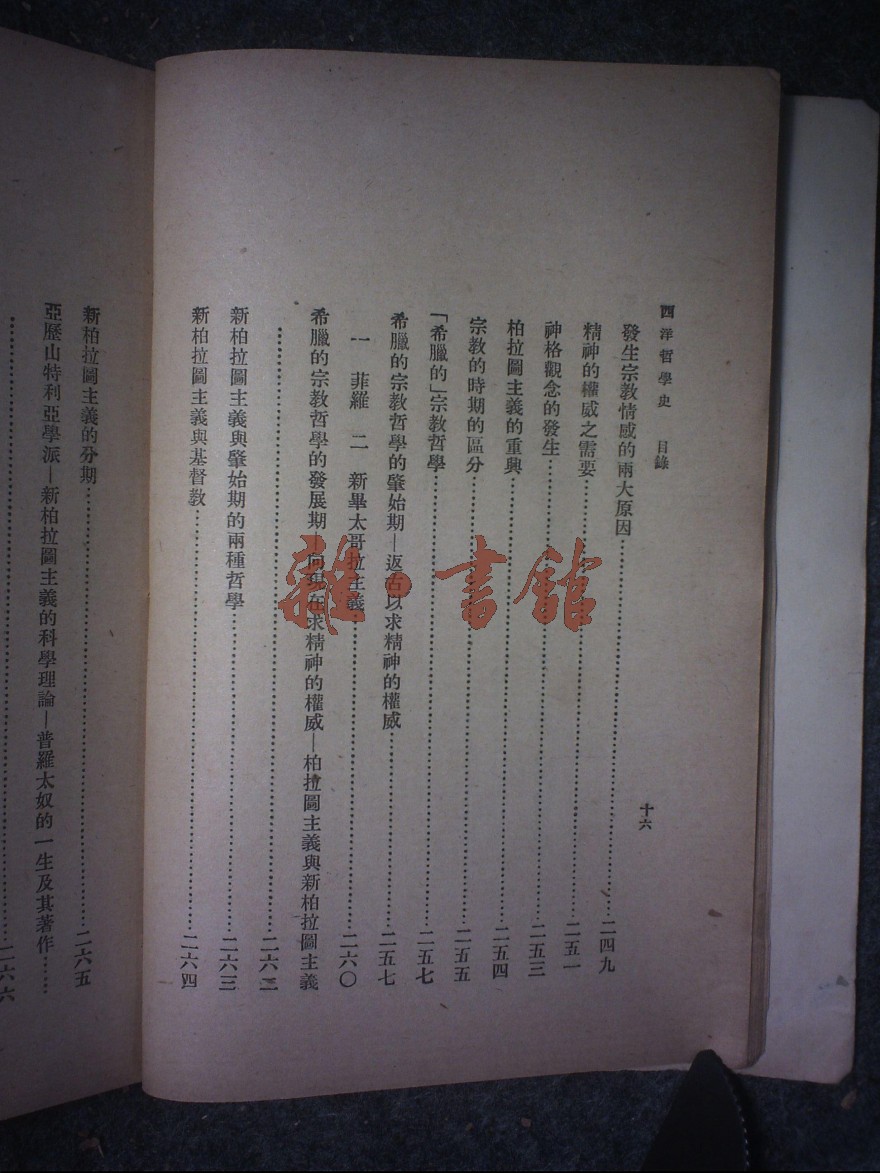 西洋哲學史　目錄
十六
發生宗教情感的兩大原因……二四九
精神的權威之需要……二五一
神格觀念的發生……二五三
柏拉圖主義的重興……二五四
宗教的時期的區分……二五五
「希臘的」宗教哲學……二五七
希臘的宗教哲學的肇始期—返古以求精神的權威……二五七
一　菲羅　二　新畢太哥拉主義……二六〇
希臘的宗教哲學的發展期—向現在求精神的權威—柏拉圖主義與新柏拉圖主義
……二六二
新柏拉圖主義與肇始期的兩種哲學……二六三
新柏拉圖主義與基督教……二六四
新柏拉圖主義的分期……二六五
亞歷山特利亞學派—新柏拉圖主義的科學理論—普羅太奴的一生及其著作……
……二六六
雜·書館